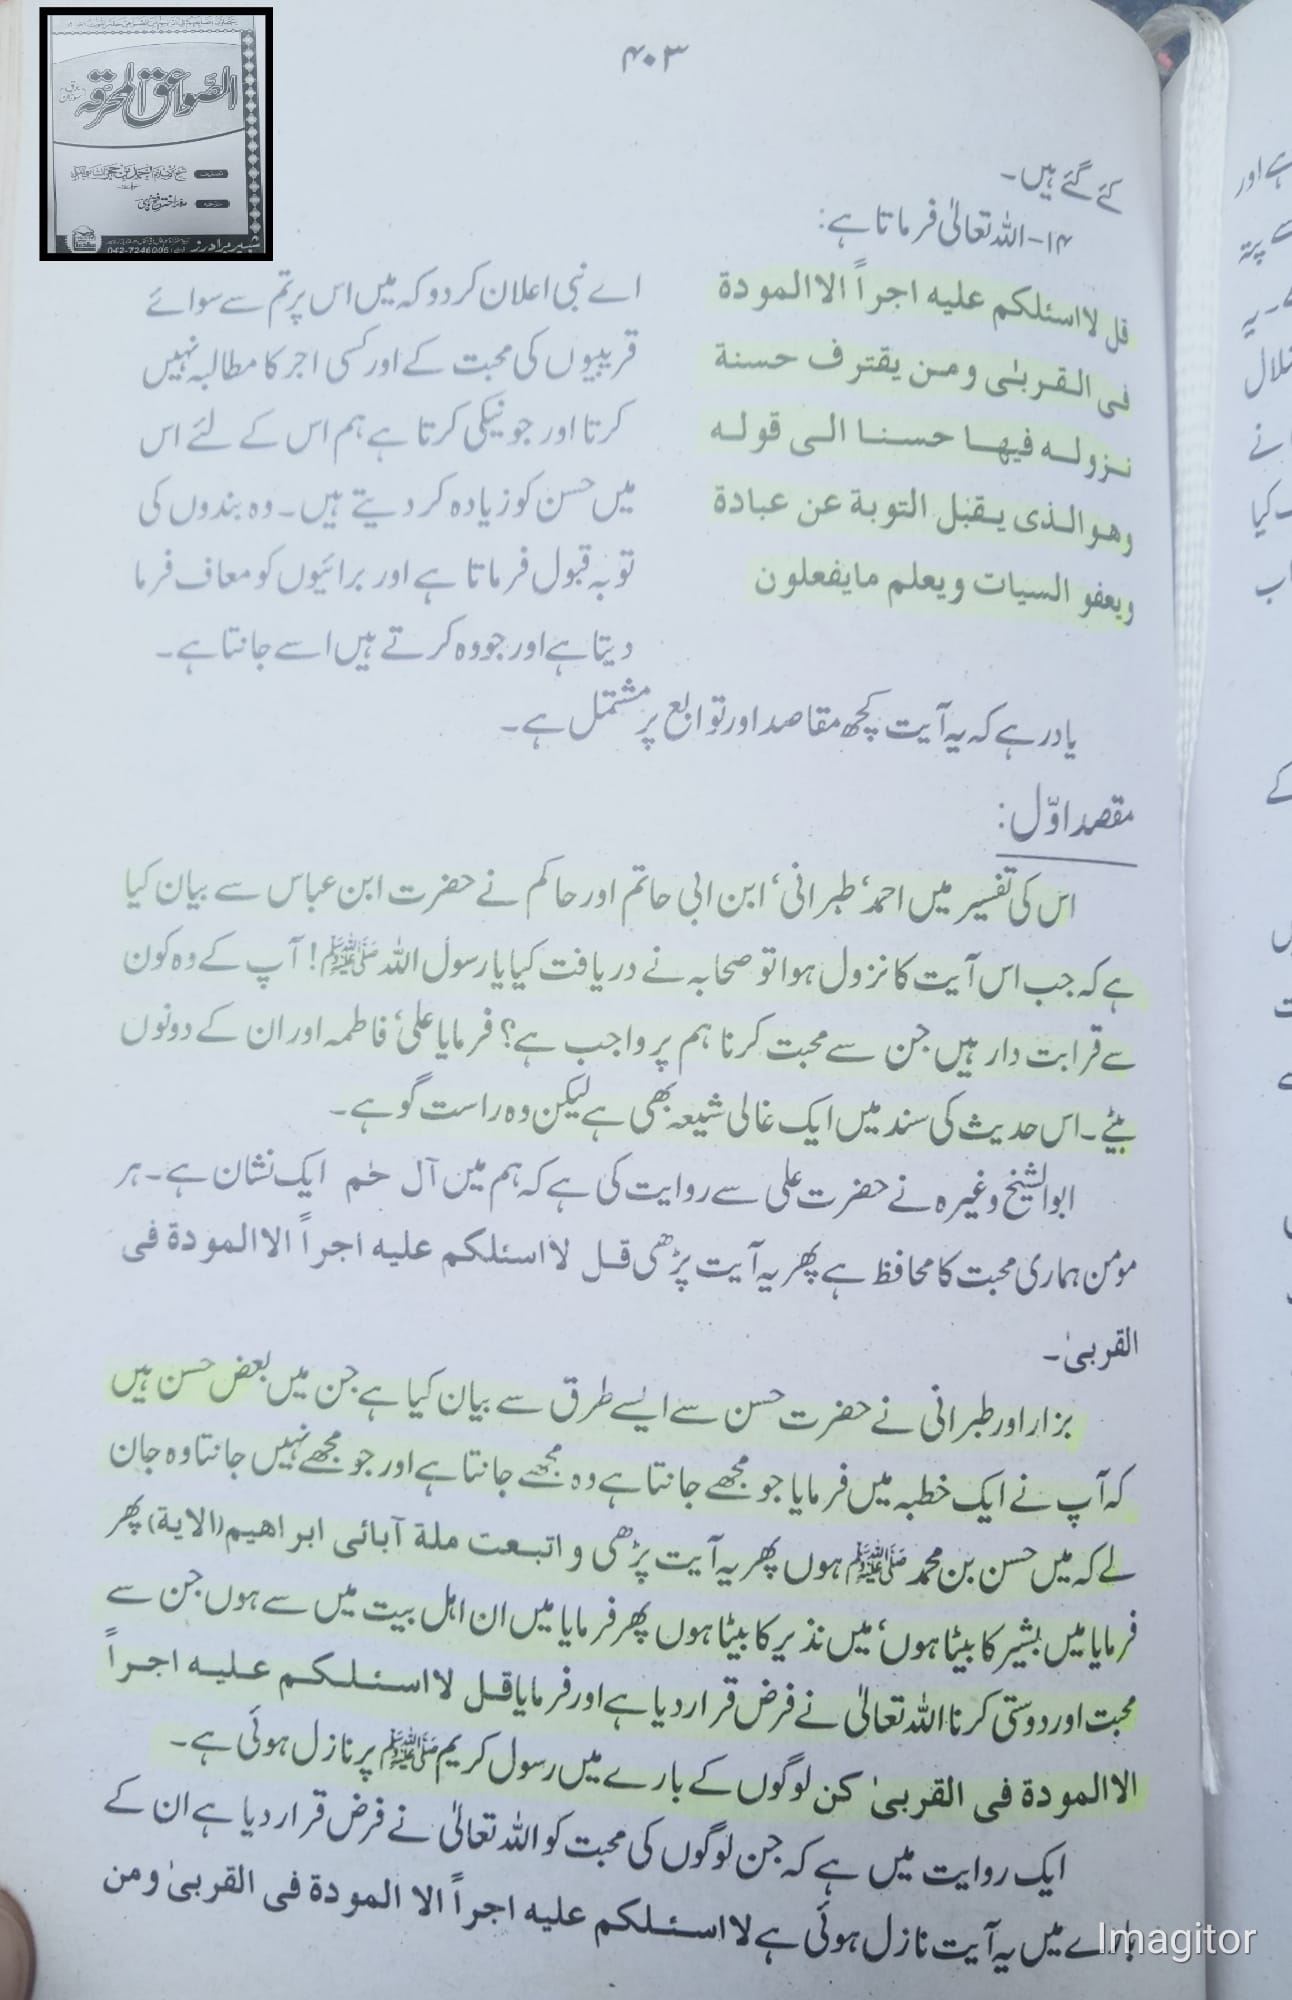 الصواعق المحرقہ
شبیر برادرز
042-7246006
۴۰۳
کئے گئے ہیں۔
۱۴-اللہ تعالیٰ فرماتا ہے:
قل لا اسئلکم علیہ اجراً الا المودۃ
فی القربیٰ ومن یقترف حسنۃ
نزولہ فیہا حسنا الی قولہ
وھو الذی یقبل التوبۃ عن عبادۃ
ویعفو السیات ویعلم مایفعلون
اے نبی اعلان کر دو کہ میں اس پر تم سے سوائے
قریبیوں کی محبت کے اور کسی اجر کا مطالبہ نہیں
کرتا اور جو نیکی کرتا ہے ہم اس کے لئے اس
میں حسن کو زیادہ کر دیتے ہیں۔ وہ بندوں کی
توبہ قبول فرماتا ہے اور برائیوں کو معاف فرما
دیتا ہے اور جو وہ کرتے ہیں اسے جانتا ہے۔
یاد رہے کہ یہ آیت کچھ مقاصد اور توابع پر مشتمل ہے۔
مقصد اوّل:
اس کی تفسیر میں احمد، طبرانی، ابن ابی حاتم اور حاکم نے حضرت ابن عباس سے بیان کیا
ہے کہ جب اس آیت کا نزول ہوا تو صحابہ نے دریافت کیا یا رسول اللہ ﷺ! آپ کے وہ کون
سے قرابت دار ہیں جن سے محبت کرنا ہم پر واجب ہے؟ فرمایا علی، فاطمہ اور ان کے دونوں
بیٹے۔ اس حدیث کی سند میں ایک غالی شیعہ بھی ہے لیکن وہ راست گو ہے۔
ابوالشیخ وغیرہ نے حضرت علی سے روایت کی ہے کہ ہم میں آل حٰم ایک نشان ہے۔ ہر
مومن ہماری محبت کا محافظ ہے پھر یہ آیت پڑھی قل لا اسئلکم علیہ اجراً الا المودۃ فی
القربیٰ۔
بزار اور طبرانی نے حضرت حسن سے ایسے طرق سے بیان کیا ہے جن میں بعض حسن ہیں
کہ آپ نے ایک خطبہ میں فرمایا جو مجھے جانتا ہے وہ مجھے جانتا ہے اور جو مجھے نہیں جانتا وہ جان
لے کہ میں حسن بن محمد ﷺ ہوں پھر یہ آیت پڑھی و اتبعت ملۃ آبائی ابراھیم (الایۃ) پھر
فرمایا میں بشیر کا بیٹا ہوں، میں نذیر کا بیٹا ہوں پھر فرمایا میں ان اہل بیت میں سے ہوں جن سے
محبت اور دوستی کرنا اللہ تعالیٰ نے فرض قرار دیا ہے اور فرمایا قل لا اسئلکم علیہ اجراً
الا المودۃ فی القربیٰ کن لوگوں کے بارے میں رسول کریم ﷺ پر نازل ہوئی ہے۔
ایک روایت میں ہے کہ جن لوگوں کی محبت کو اللہ تعالیٰ نے فرض قرار دیا ہے ان کے
بارے میں یہ آیت نازل ہوئی ہے لا اسئلکم علیہ اجراً الا المودۃ فی القربیٰ ومن
Imagitor